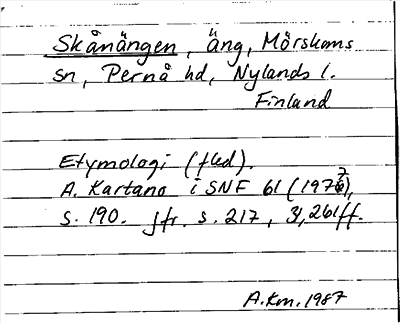 Skånängen, äng, Mörskoms
sn, Pernå hd, Nylands l.
Finland
Etymologi (fled).
A. Kartano i SNF 61 (1977),
s. 190. jfr. s. 217, 261ff.
A.Km. 1987